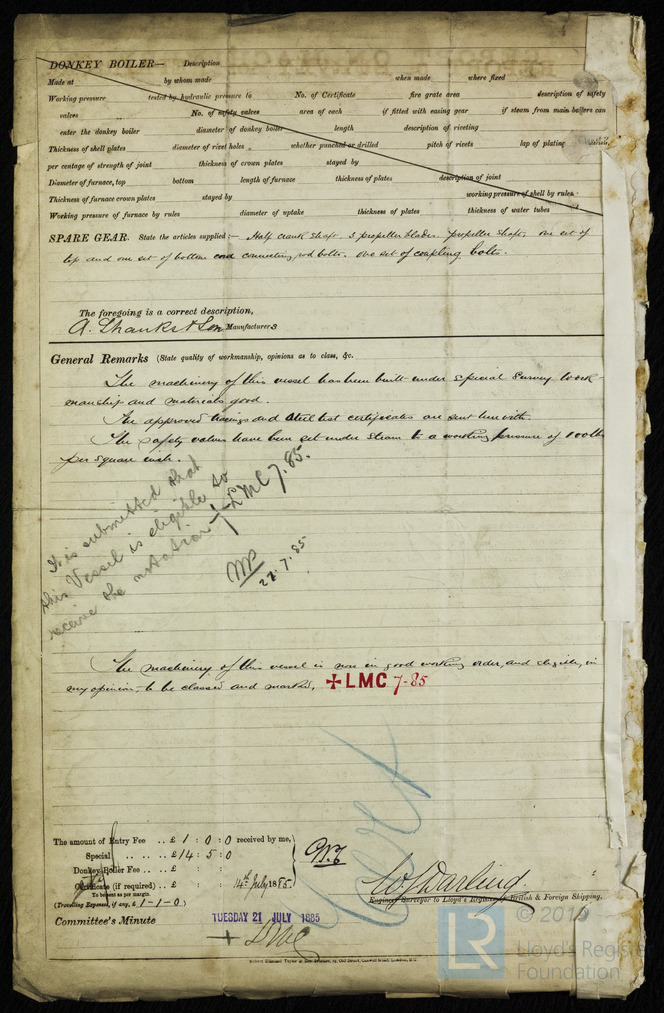 DONKEY BOILER— Description
Made at by whom made when made where fixed
Working pressure tested by hydraulic pressure to No. of Certificate fire grate area description of safety
valves No. of safety valves area of each if fitted with easing gear if steam from main boilers can
enter the donkey boiler diameter of donkey boiler length description of riveting
Thickness of shell plates diameter of rivet holes whether punched or drilled pitch of rivets lap of plating
per centage of strength of joint thickness of crown plates stayed by
Diameter of furnace, top bottom length of furnace thickness of plates description of joint
Thickness of furnace crown plates stayed by working pressure of shell by rules
Working pressure of furnace by rules diameter of uptake thickness of plates thickness of water tubes
SPARE GEAR. State the articles supplied:— Half crank shaft. 3 propeller blades. propeller shaft. one set of
top and one set of bottom connecting rod bolts. One set of coupling bolts.
The foregoing is a correct description,
A. Shanks & Son Manufacturers
General Remarks (State quality of workmanship, opinions as to class, &c.
The machinery of this vessel has been built under special survey work-
manship and materials good.
The approved tracings and steel test certificates are sent herewith.
The safety valves have been set under steam to a working pressure of 100 lbs
per square inch.
It is submitted that
this Vessel is eligible to
receive the notation + LMC 7.85.
22.7.85
The machinery of this vessel is now in good working order, and eligible, in
my opinion, to be classed and marked, + LMC 7-85
The amount of Entry Fee .. £ 1 : 0 : 0 received by me,
Special .. .. .. £14 : 5 : 0
Donkey Boiler Fee .. .. £ : :
Certificate (if required) .. £ : : 14th July 1885.
To be sent as per margin.
(Travelling Expenses, if any, £ 1-1-0)
W J Darling
Engineer Surveyor to Lloyd's Register of British & Foreign Shipping.
Committee's Minute TUESDAY 21 JULY 1885
+ LMC
© 2019
LR
Lloyd's Register
Foundation